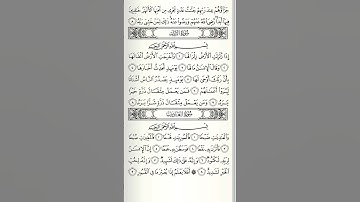 جَزَاؤُهُمْ عِندَ رَبِّهِمْ جَنَّاتُ عَدْنٍ تَجْرِي مِن تَحْتِهَا الْأَنْهَارُ خَالِدِينَ
فِيهَا أَبَدًا رَّضِيَ اللَّهُ عَنْهُمْ وَرَضُوا عَنْهُ ذَٰلِكَ لِمَنْ خَشِيَ رَبَّهُ ٨
سُورَةُ الزَّلْزَلَةِ
بِسْمِ اللَّهِ الرَّحْمَٰنِ الرَّحِيمِ
إِذَا زُلْزِلَتِ الْأَرْضُ زِلْزَالَهَا ١ وَأَخْرَجَتِ الْأَرْضُ أَثْقَالَهَا
٢ وَقَالَ الْإِنسَانُ مَا لَهَا ٣ يَوْمَئِذٍ تُحَدِّثُ أَخْبَارَهَا ٤
بِأَنَّ رَبَّكَ أَوْحَىٰ لَهَا ٥ يَوْمَئِذٍ يَصْدُرُ النَّاسُ أَشْتَاتًا
لِّيُرَوْا أَعْمَالَهُمْ ٦ فَمَن يَعْمَلْ مِثْقَالَ ذَرَّةٍ خَيْرًا
يَرَهُ ٧ وَمَن يَعْمَلْ مِثْقَالَ ذَرَّةٍ شَرًّا يَرَهُ ٨
سُورَةُ الْعَادِيَاتِ
بِسْمِ اللَّهِ الرَّحْمَٰنِ الرَّحِيمِ
وَالْعَادِيَاتِ ضَبْحًا ١ فَالْمُورِيَاتِ قَدْحًا ٢ فَالْمُغِيرَاتِ صُبْحًا
٣ فَأَثَرْنَ بِهِ نَقْعًا ٤ فَوَسَطْنَ بِهِ جَمْعًا ٥ إِنَّ الْإِنسَانَ
لِرَبِّهِ لَكَنُودٌ ٦ وَإِنَّهُ عَلَىٰ ذَٰلِكَ لَشَهِيدٌ ٧ وَإِنَّهُ لِحُبِّ
الْخَيْرِ لَشَدِيدٌ ٨ ۞ أَفَلَا يَعْلَمُ إِذَا بُعْثِرَ مَا فِي الْقُبُورِ ٩